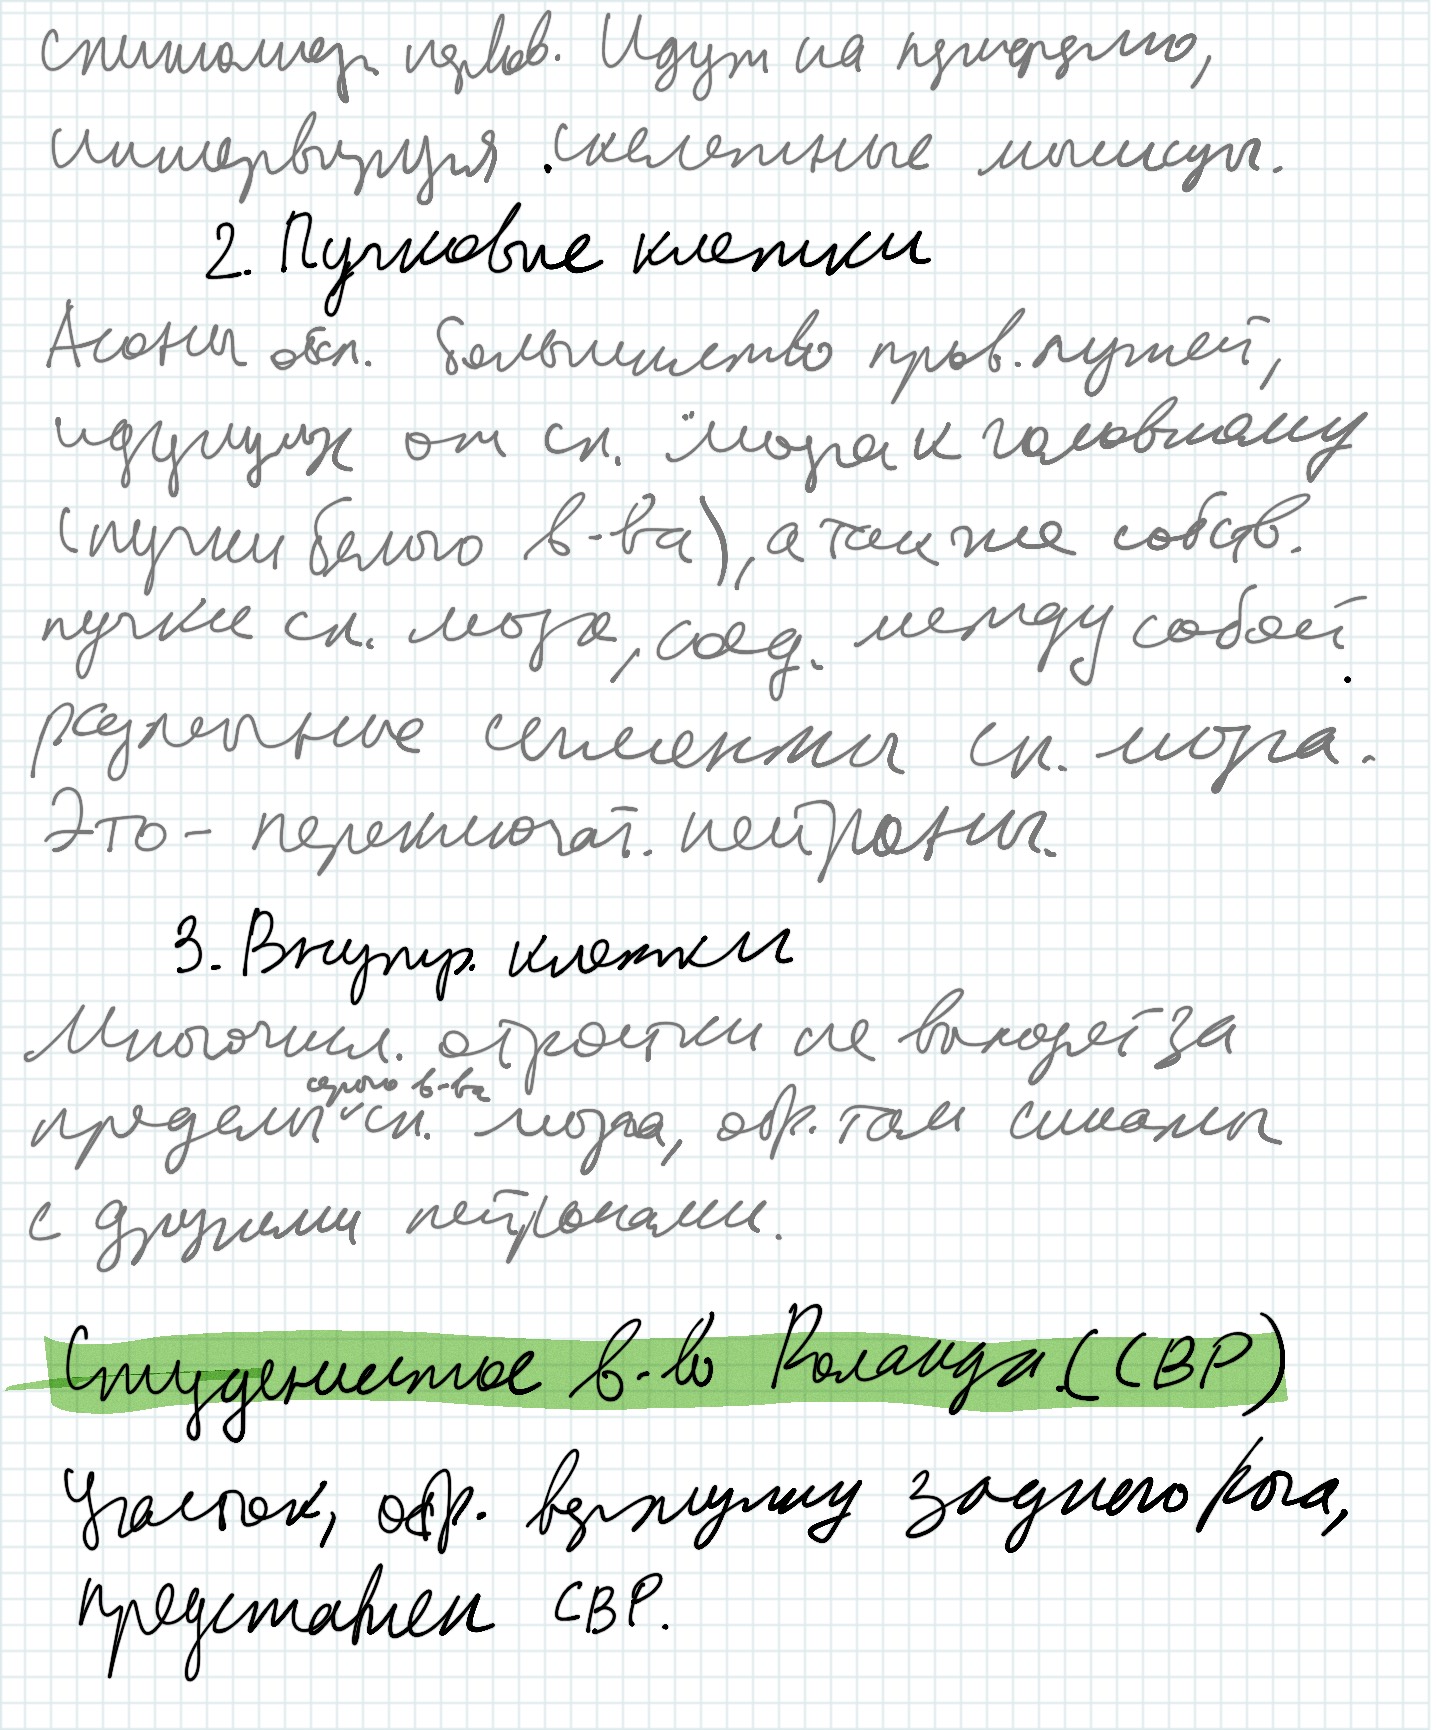 спинномозг. нервов. Идут на периферию,
иннервируя скелетные мышцы.
2. Пучковые клетки
Аксоны обсл. большинство пров. путей,
идущих от сп. мозга к головному
(пучки белого в-ва), а также собств.
пучки сп. мозга, соед. между собой
различные сегменты сп. мозга.
Это - переключат. нейроны.
3. Внутр. клетки
Многочисл. отростки не выходят за
серого в-ва
пределы сп. мозга, обр. там синапсы
с другими нейронами.
Студенистое в-во Роланда. (СВР)
Участок, обр. верхушку заднего рога,
представлен СВР.